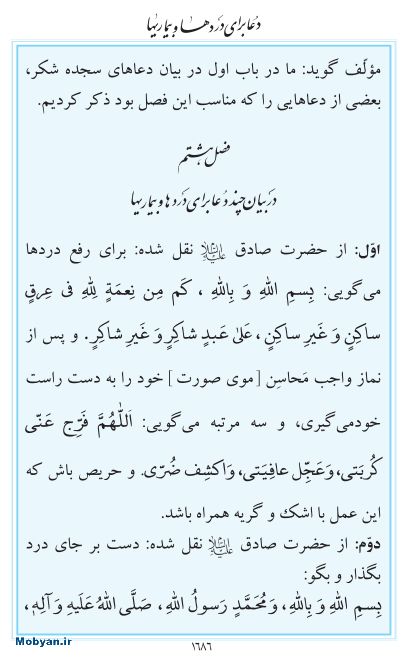 دعا برای دردها و بیماریها
مؤلّف گوید: ما در باب اول در بیان دعاهای سجده شکر،
بعضی از دعاهایی را که مناسب این فصل بود ذکر کردیم.
فصل هشتم
در بیان چند دعا برای دردها و بیماریها
اوّل: از حضرت صادق علیه‌السلام نقل شده: برای رفع دردها
می‌گویی: بِسمِ اللهِ وَ بِاللهِ ، کَم مِن نِعمَةٍ لِلهِ فی عِرقٍ
ساکِنٍ وَ غَیرِ ساکِنٍ، عَلیٰ عَبدٍ شاکِرٍ وَ غَیرِ شاکِرٍ. و پس از
نماز واجب مَحاسِن [موی صورت] خود را به دست راست
خودمی‌گیری، و سه مرتبه می‌گویی: اَللّهُمَّ فَرِّج عَنّی
کُربَتی، وَ عَجِّل عافِیَتی، وَ اکشِف ضُرّی. و حریص باش که
این عمل با اشک و گریه همراه باشد.
دوّم: از حضرت صادق علیه‌السلام نقل شده: دست بر جای درد
بگذار و بگو:
بِسمِ اللهِ وَ بِاللهِ، وَ مُحَمَّدٍ رَسولُ اللهِ، صَلَّی اللهُ عَلَیهِ وَ آلِهِ،
Mobyan.ir
۱۶۸۶